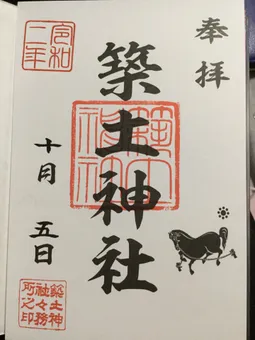 奉拝
築土神社
令和
二年
十月 五日
築土神
社々務
所之印